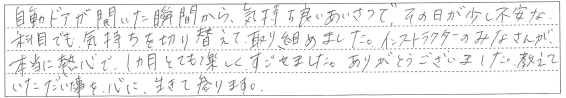 自動ドアが開いた瞬間から、気持ち良いあいさつで、その日が少し不安な
科目でも、気持ちを切り替えて、取り組めました。インストラクターのみなさんが
本当に熱心で、1カ月とても楽しくすごせました。ありがとうございました。教えて
いただいた事を、心に、生きて参ります。